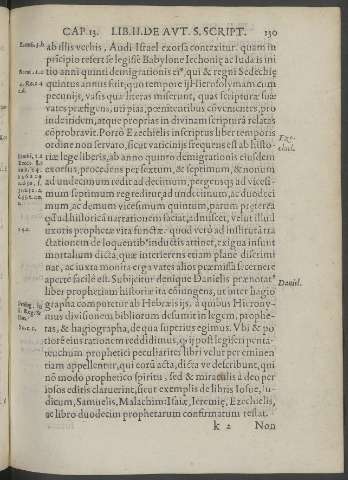 CAP. 13. LIB. II. DE AVT. S. SCRIPT. 130
ab illis verbis, Audi Israel exorsa contexitur. quam in
principio refert se legisse Babylone Iechoniæ ac Iuda is ini
tio anni quinti demigrationis eiꝰ, qui & regni Sedechię
quintus annus fuit, quo tempore ij Hierosolymam cum
pecunijs, vasis quæ literas miserunt, quas scripturæ suæ
vates præfiguras, vt pias, pœnitentibus cōuenientes, pro
inde itidem, atque proprias in diuinam scripturā relatas
cōprobauit. Porrò Ezechielis inscriptus liber temporis
ordine non seruato, sicut vaticinijs frequens est ab histo-
riæ lege liberis, ab anno quinto demigrationis eiusdem
exorsus, procedens per sextum, & septimum, & nonum
ad undecimum redit ad decimum, pergensq́; ad vicesi-
mum septimum regreditur ad undecimum, ac duodeci
mum, ac demum vicesimum quintum, parum præterea
qđ ad historicā narrationem faciat, admiscet, velut illud
uxoris prophetæ vita functæ. quod verò ad instituta tra
ctationem de loquentibꝰ inductis attinet, exigua insunt
mortalium dicta, quæ interserens etiam planè discrimi
nat, ac iuxta monita erga vates alios præmissa secernere
apertè facilè est. Subijcitur deníque Danielis prænotatꝰ
liber prophetiam historiæ ita cōiungens, ut inter hagio
grapha computetur ab Hebræis ijs, à quibus Hierony-
mus diuisionem bibliorum desumit in legem, prophe-
tas, & hagiographa, de qua superius egimus. Vbi & po
tiorē eius rationem reddidimus, ꝙ ij post legiferi penta-
teuchum prophetici peculiarites libri velut per eminen
tiam appellentur, qui corū acta, dicta ve describunt, qui
nō modo prophetico spiritu, sed & miraculis à deo per
iosos editis claruerint, sicut exemplis de libris Iosue, Iu-
dicum, Samuelis, Malachim: Isaiæ, Ieremiæ, Ezechielis,
ac libro duodecim prophetarum confirmatum restat.
k 2 Non
Eze-
chiel.
Daniel.